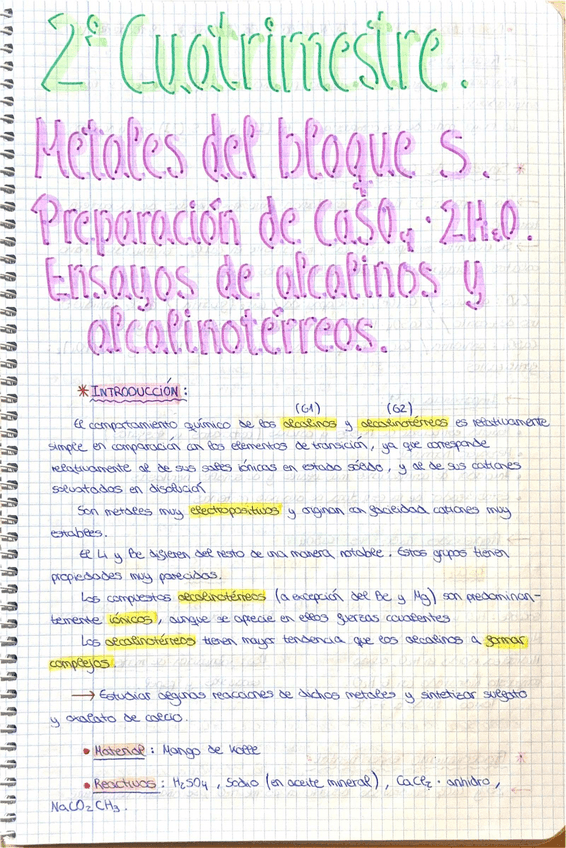 2º Cuatrimestre.
Metales del bloque s.
+
Preparación de CaSO₄ · 2H₂O.
Ensayos de alcalinos y
alcalinotérreos.
* INTRODUCCIÓN:
(G1) (G2)
El comportamiento químico de los alcalinos y alcalinotérreos es relativamente
simple en comparación con los elementos de transición, ya que corresponde
relativamente al de sus sales iónicas en estado sólido, y al de sus cationes
solvatados en disolución
Son metales muy electropositivos y originan con facilidad cationes muy
estables.
El Li y Be difieren del resto de una manera notable. Estos grupos tienen
propiedades muy parecidas.
Los compuestos alcalinotérreos (a excepción del Be y Mg) son predominan-
temente iónicos, aunque se aprecie en ellos fuerzas covalentes
Los alcalinotérreos tienen mayor tendencia que los alcalinos a formar
complejos.
→ Estudiar algunas reacciones de dichos metales y sintetizar sulfato
y oxalato de calcio.
• Material: Mango de Kolle
• Reactivos: H₂SO₄, Sodio (en aceite mineral), CaCl₂ · anhidro,
NaCO₂CH₃.